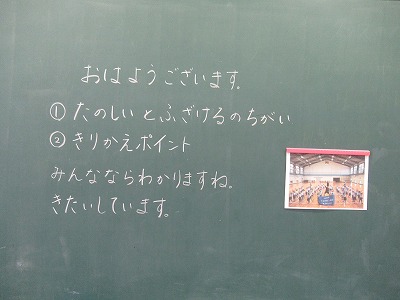 おはようございます。
①たのしいとふざけるのちがい
②きりかえポイント
みんなならわかりますね。
きたいしています。